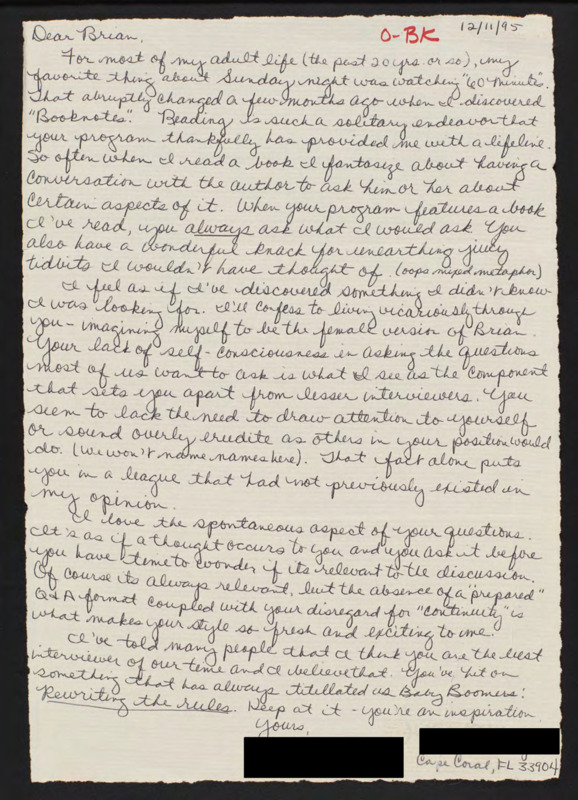 12/11/95
O-BK
Dear Brian,
For most of my adult life (the past 20 yrs. or so), my
favorite thing about Sunday night was watching "60 Minutes".
That abruptly changed a few months ago when I discovered
"Booknotes". Reading is such a solitary endeavor that
your program thankfully has provided me with a lifeline.
So often when I read a book I fantasize about having a
conversation with the author to ask him or her about
certain aspects of it. When your program features a book
I've read, you always ask what I would ask. You
also have a wonderful knack for unearthing juicy
tidbits I wouldn't have thought of. (oops mixed metaphor)
I feel as if I've discovered something I didn't know
I was looking for. I'll confess to living vicariously through
you - imagining myself to be the female version of Brian.
Your lack of self-consciousness in asking the questions
most of us want to ask is what I see as the component
that sets you apart from lesser interviewers. You
seem to lack the need to draw attention to yourself
or sound overly erudite as others in your position would
do. (we won't name names here). That fact alone puts
you in a league that had not previously existed in
my opinion.
I love the spontaneous aspect of your questions.
It's as if a thought occurs to you and you ask it before
you have time to wonder if its relevant to the discussion.
Of course its always relevant, but the absence of a "prepared"
Q&A format coupled with your disregard for "continuity" is
what makes your style so fresh and exciting to me.
I've told many people that I think you are the best
interviewer of our time and I believe that. You've hit on
something that has always titellated us Baby Boomers:
Rewriting the rules. Keep at it - you're an inspiration.
Yours,
Cape Coral, FL 33904